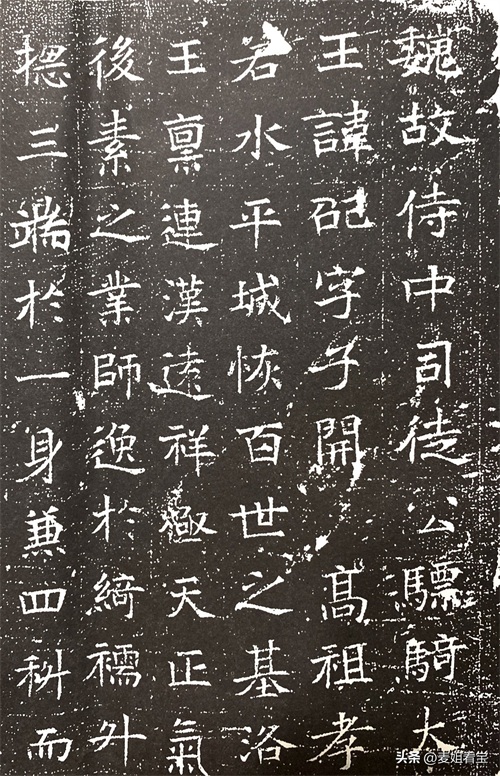 魏故侍中司徒公驃騎大
王諱卲字子開 高祖孝
若水平城恢百世之基洛
王稟連漢遠祥極天正氣
後素之業師逸於綺襦外
揔三端於一身兼四科而
头条 @麦姐看